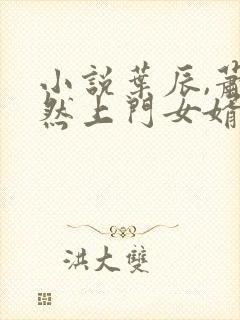 小說葉辰,蕭
然上門女婿
洪大雙